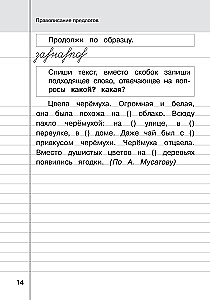 Правописание предлогов
Продолжи по образцу.
Спиши текст, вместо скобок запиши
подходящее слово, отвечающее на воп-
росы какой? какая?
Цвела черёмуха. Огромная и белая,
она была похожа на () облако. Всюду
пахло черёмухой: на () улице, в ()
переулке, в () доме. Даже чай был с ()
привкусом черёмухи. Черёмуха отцвела.
Вместо душистых цветов на () деревьях
появились ягодки. (По А. Мусатову)
14